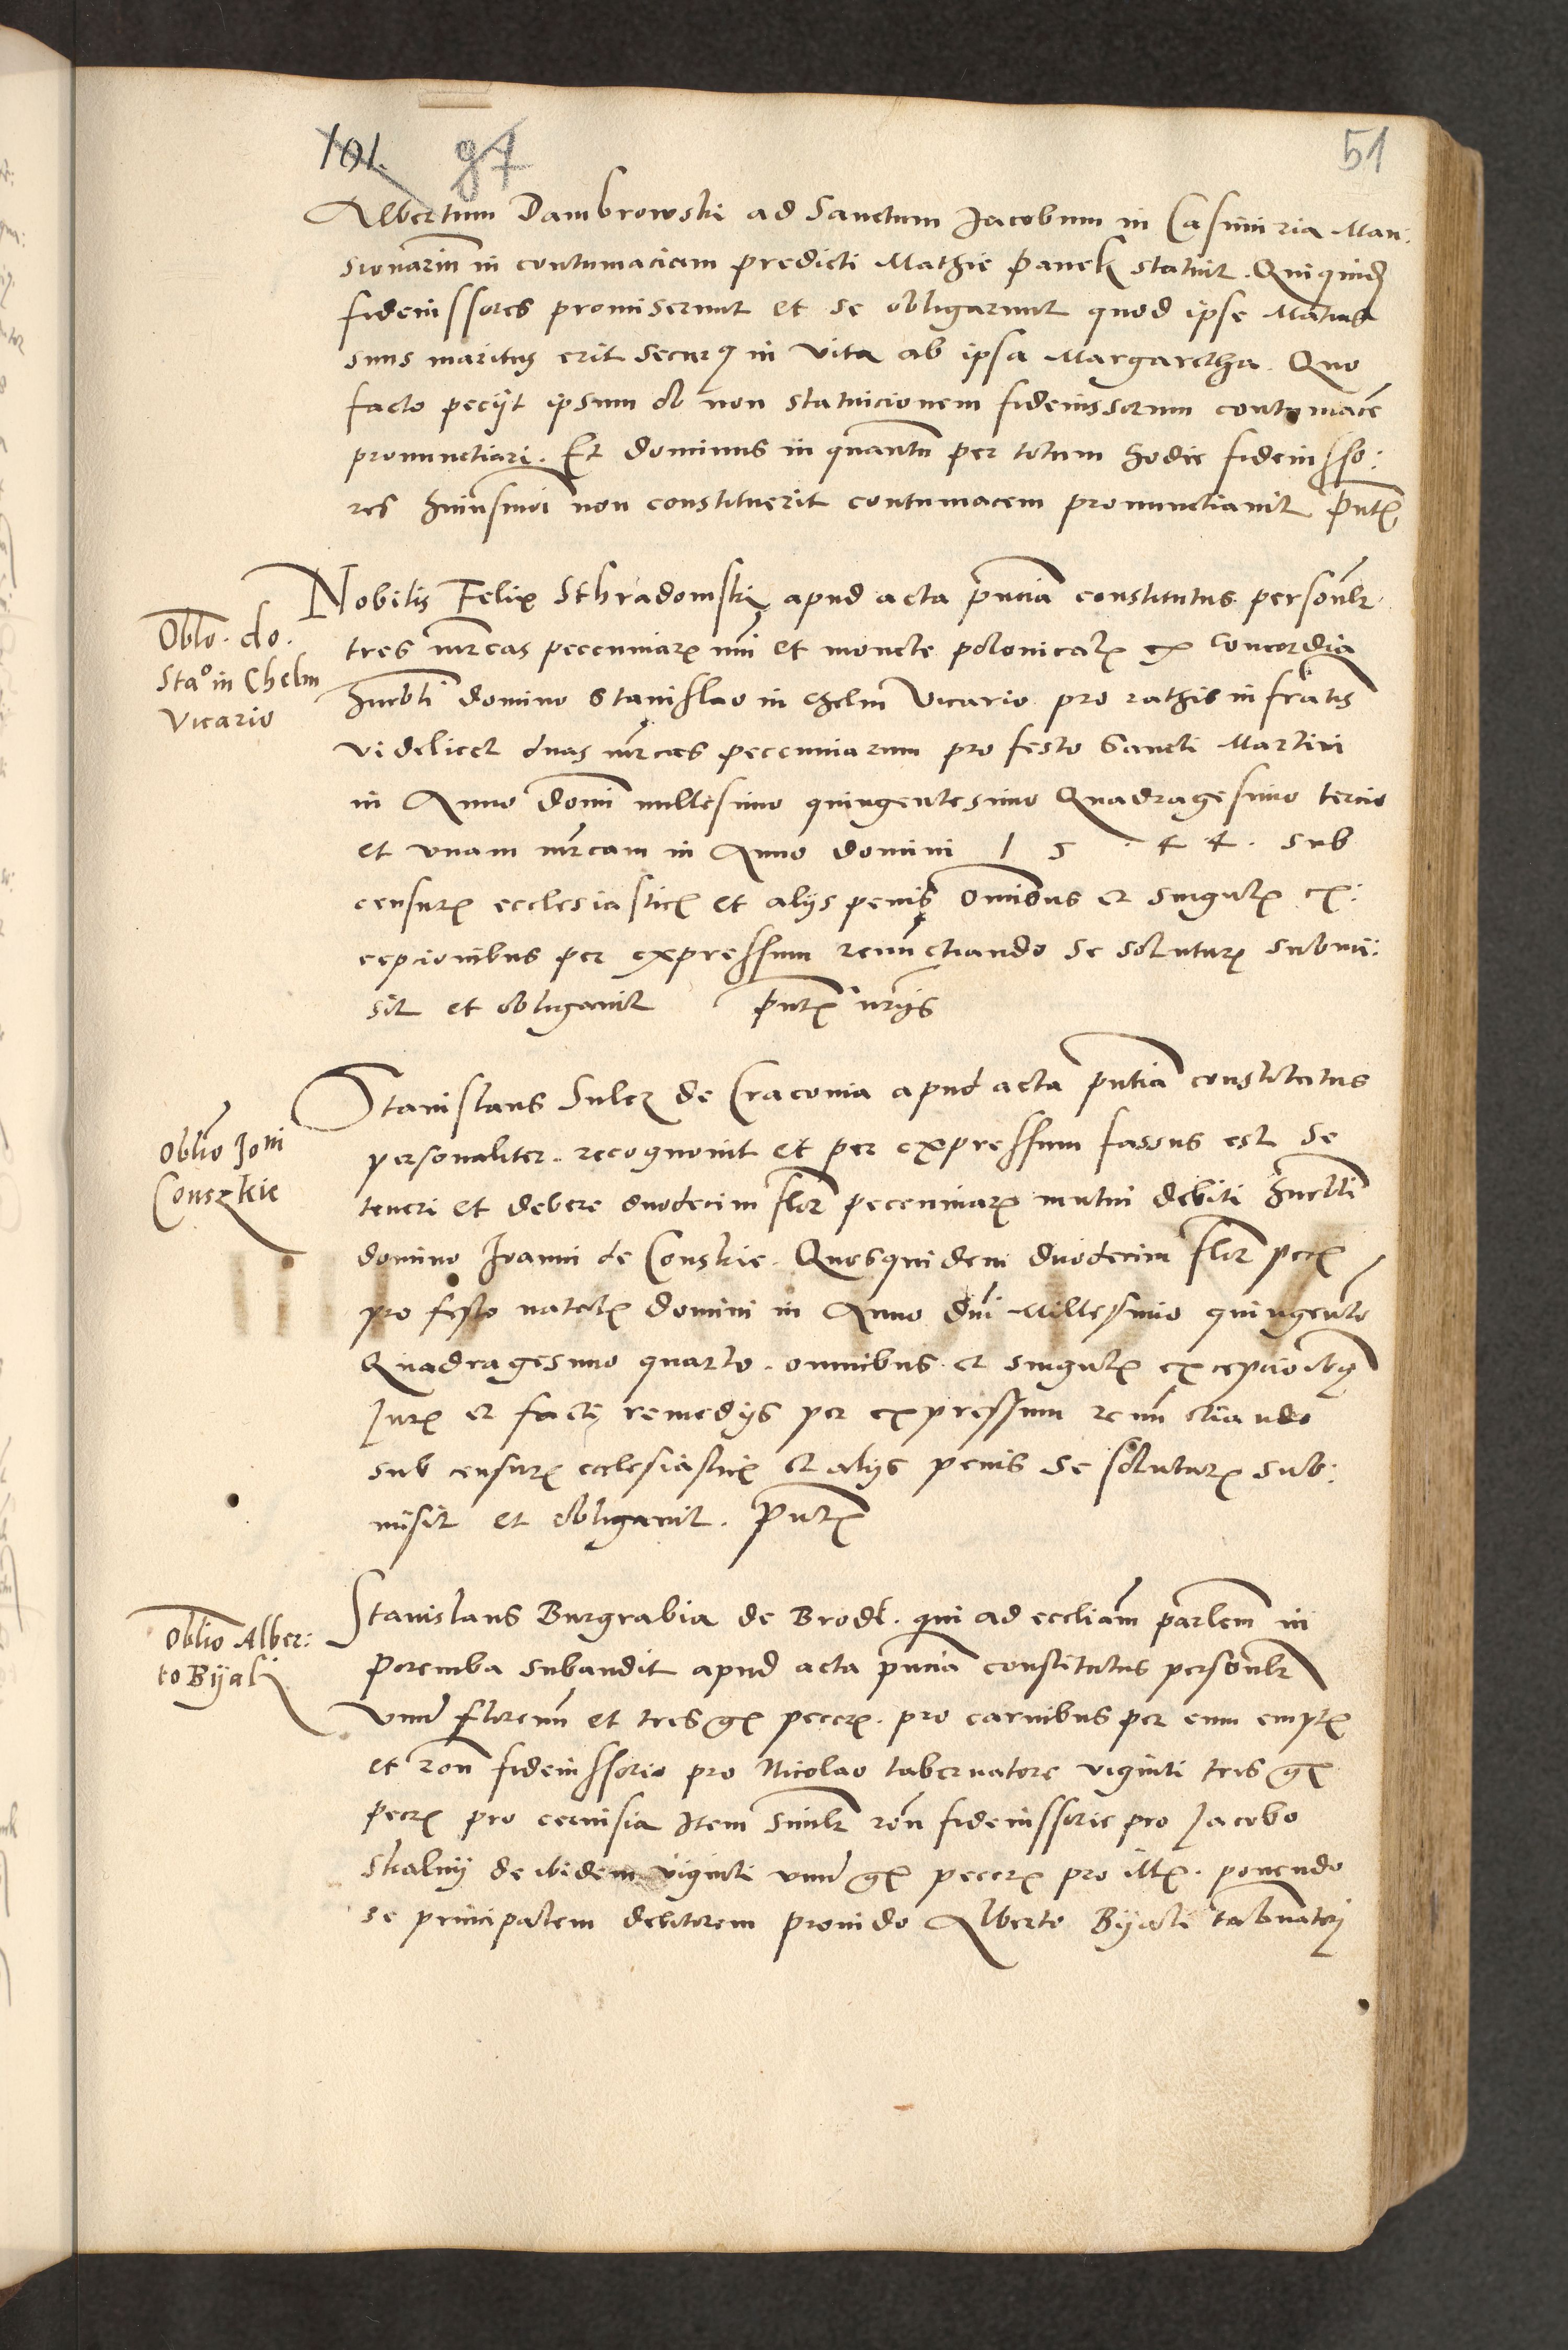 101. 97
51
Albertum Dambrowski ad Sanctum Jacobum in Casimiria Man:
sionariũ in contumaciam predicti Mathie Panek statuit. Qui quidẽ
fideiussores promiserunt et se obligarunt quod ipse Matias
suus maritus erit securus in vita ab ipsa Margaretha. Quo
facto peciit ipsum ob non statuicionem fideiussorum contumacẽ
pronunctiari. Et dominus in quantũ per totum hodie fideiusso:
res huiusmõi non constituerit contumacem pronunctiavit pñtꝫ
Oblo. do.
Stao in Chelm
Vicario
Nobilis Felix Sthradomski apud acta pñcia constitutus personlr
tres mrcas pecuniarꝫ nuṁ et monete polonicalꝫ ex concordia
hurbli domino Stanislao in Chelm Vicario pro rathis infratis
videlicet duas mrcas pecuniarum pro festo Sancti Martini
in Anno domi millesimo quingentesimo Quadragesimo tercio
et unam mrcam in Anno domini 15 . 44 . sub
censurꝫ ecclesiasticꝫ et alijs penis omibus et singulꝫ ex:
cepcionibus per expressum renunctiando se soluturꝫ submi:
sit et obligavit pñtꝫ
Oblio Joni
Conszkie
Stanislaus Sulcz de Cracovia apud acta pñtia constitutus
personaliter. recognovit et per expressum fassus est se
teneri et debere duodecim flor pecuniarꝫ mutui debiti hurbli
domino Joanni de Conskie. Quosquidem duodecim flor pecꝫ
pro festo natalꝫ domini in Anno dni Millesimo quingento
Quadragesimo quarto. omnibus et singulꝫ excepciõibus
Jurꝫ et facti remedijs per expressum renunctiando
sub censurꝫ ecclesiasticꝫ et alijs penis se soluturꝫ sub:
misit et obligavit. pñtꝫ
Oblio Alber:
to Byali
Stanislaus Burgrabia de Brodl. qui ad eccliam parlem in
Poremba subaudit apud acta pñcia constitutus personlr
unũ florenũ et tres gꝫ pecꝫ. pro carnibus per eum emptꝫ
et rõne fideiussorio pro Nicolao tabernatore viginti tres gꝫ
pecꝫ pro cervisia Item similr rõne fideiussorie pro Jacobo
Skalnij de ibidem viginti unũ gꝫ pecꝫ pro illꝫ. ponendo
se principalem debitorem provido Alberto Byali tabnatorj